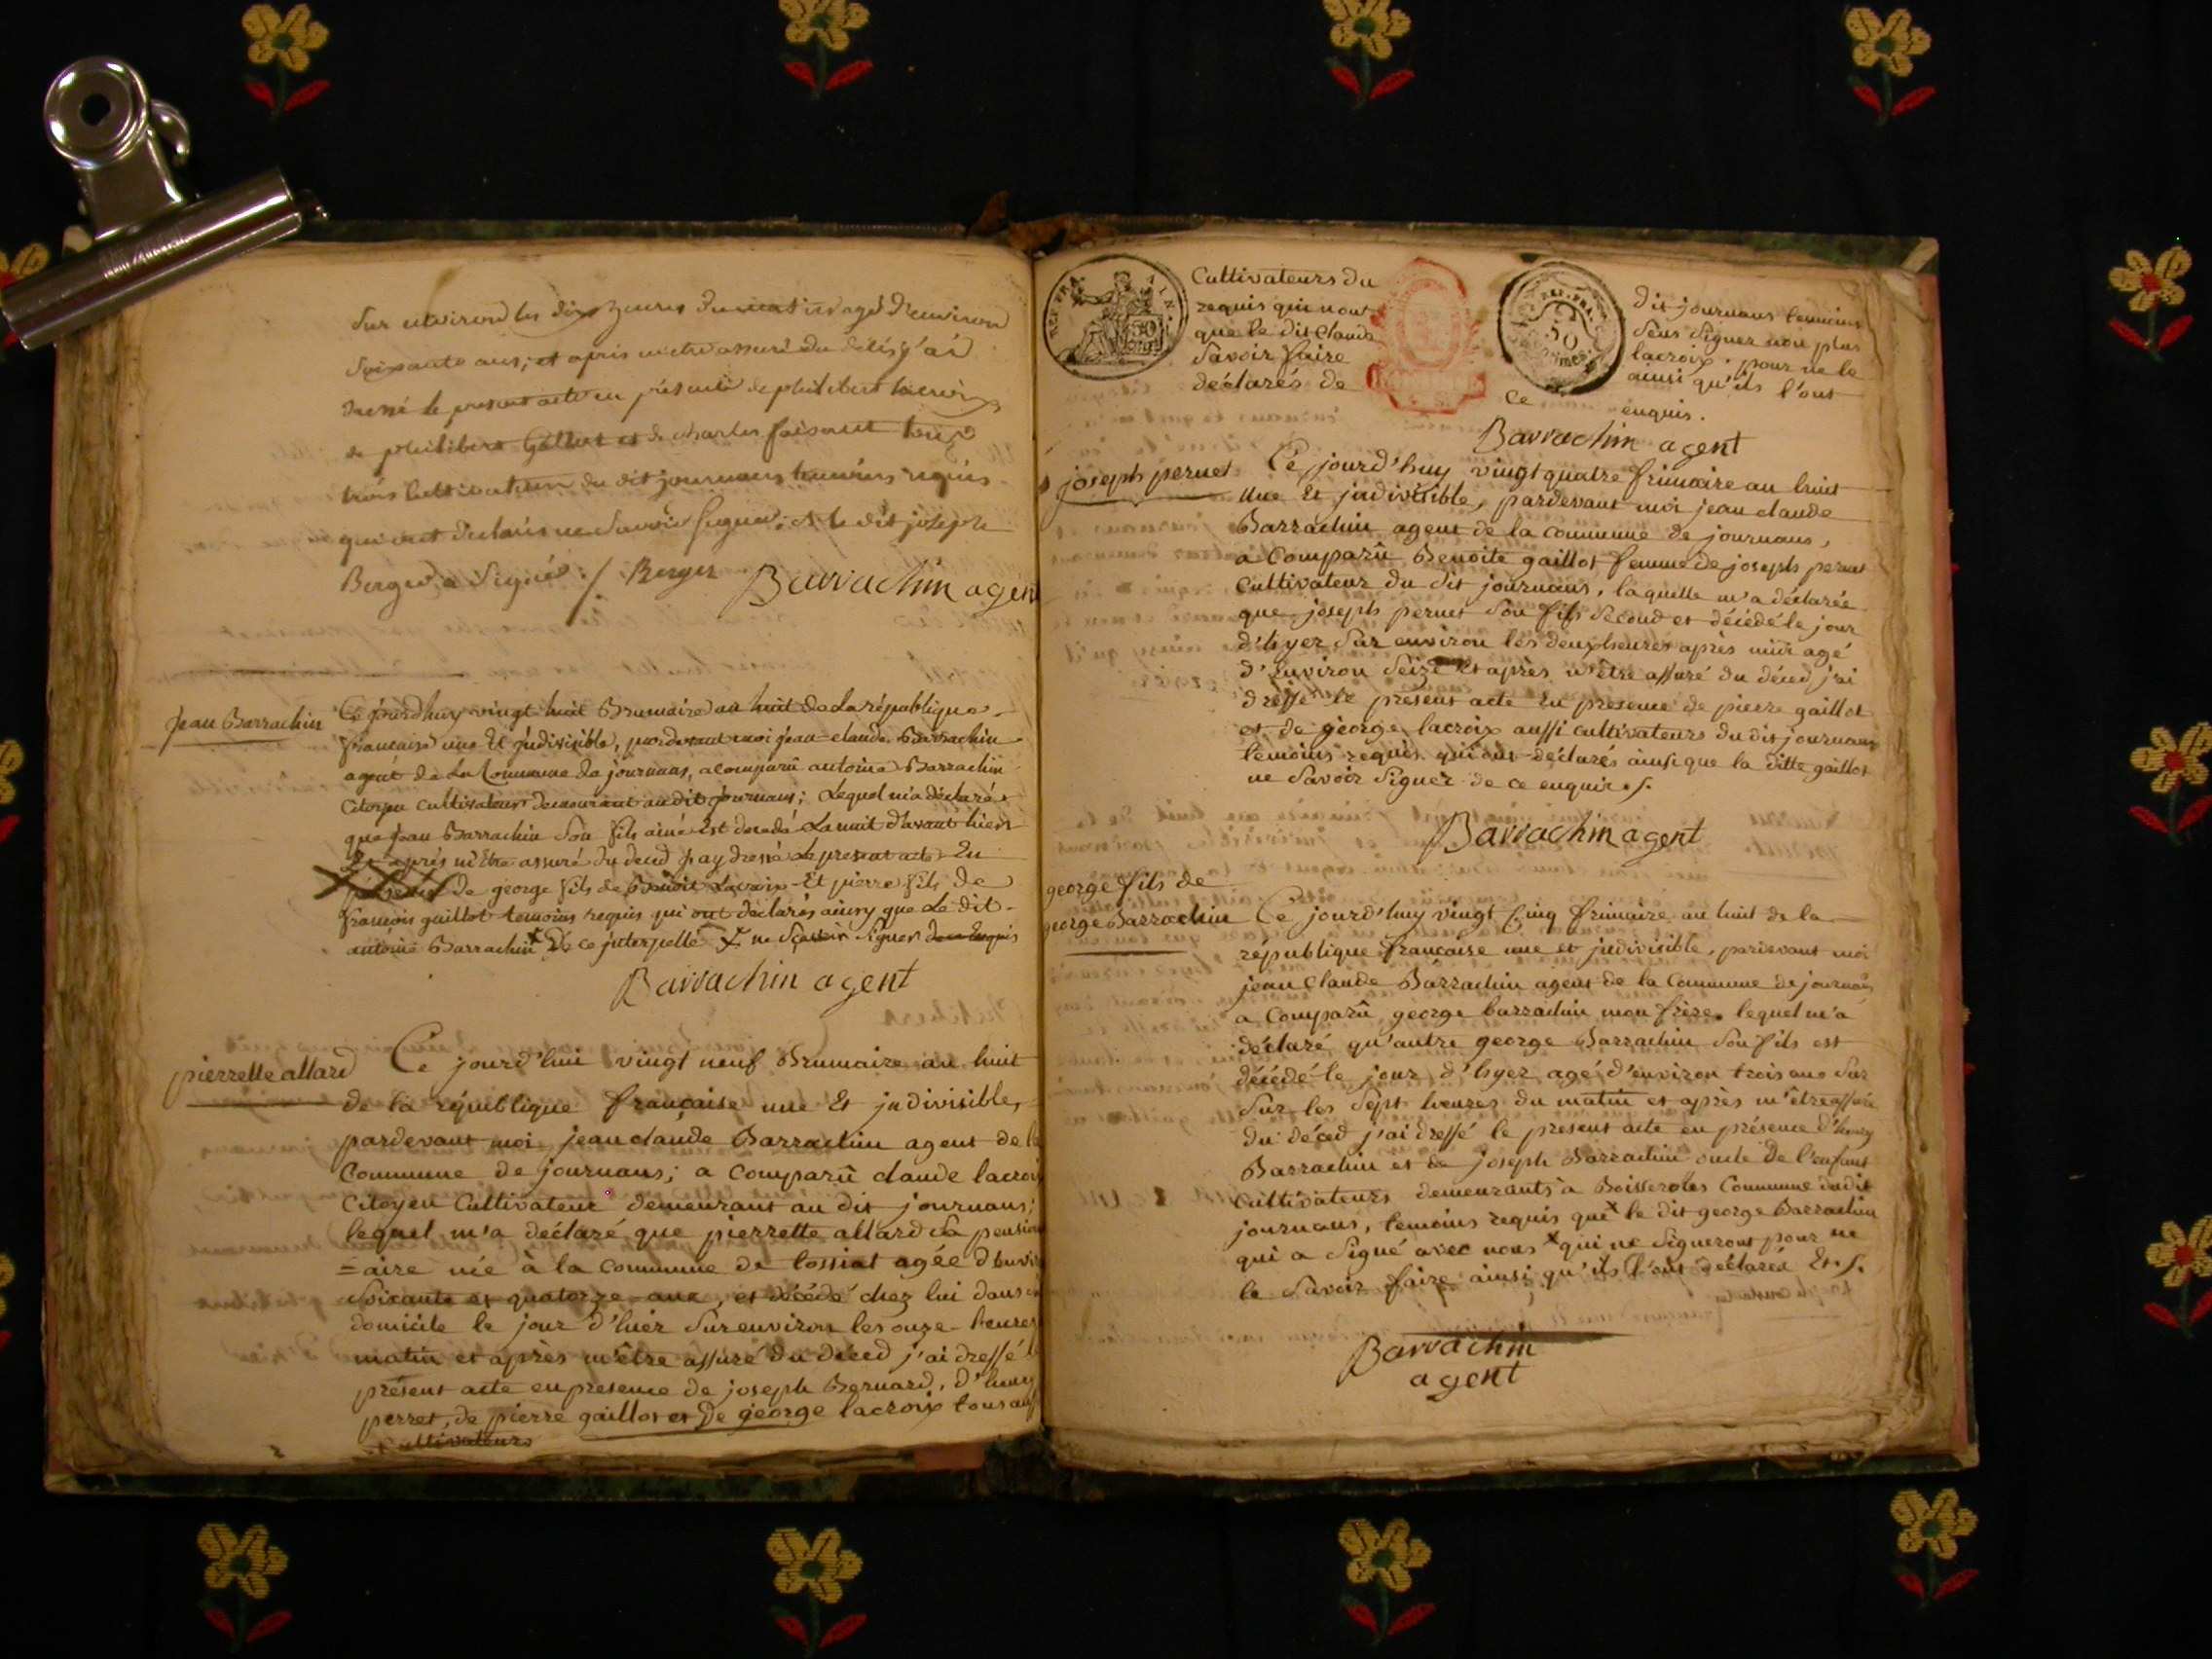 Sur environ les dix heures du matin agé d'environ
Soixante ans; et après m'etre assuré du décès j'ai
dressé le present acte en présence de philibert lacroix
de philibert Gallet et de charles foisont tous
trois Cultivateurs du dit journans temoins requis
qui ont déclarés ne Savoir Signer; et le dit joseph
Berger a Signé ./. Berger Barrachin agent
jean Barrachin
Ce jourd'huy vingt huit Brumaire an huit de La république
française une Et jndivisible, pardevant moi jean-claude Barrachin
agent de La Commune de journans, a comparû antoine Barrachin
Citoyen Cultivateur demeurant au dit journans; Lequel m'a déclaré
que jean Barrachin Son fils ainé Est decedé La nuit d'avant hier
Et aprés m'Etre assuré du deced j'ay dressé Le present acte En
presence de george fils de Benoit Lacroix Et pierre fils de
françois gaillot temoins requis qui ont déclarés ainsy que Le dit
antoine Barrachin De ce jnterpellé ne Sçavoir Signer de ce Enquis
Barrachin agent
pierrette allard
Ce jourd'hui vingt neuf Brumaire an huit
de la république française une Et jndivisible,
pardevant moi jean claude Barrachin agent de la
Commune de journans; a comparû claude lacroix
Citoyen Cultivateur demeurant au dit journans;
lequel m'a déclaré que pierrette allard Sa pension
=aire née à la commune de tossiat agée d'envi
Soixante et quatorze ans, et décédé chez lui dans
domicile le jour d'hier Sur environ les onze heures
matin et après m'être assuré du déced j'ai dressé le
présent acte en presence de joseph Bernard, d'henry
perret, de pierre gaillot et De george lacroix tous
Cultivateurs
Cultivateurs du dit journans temoins
requis qui nont Seus Signer non plus
que le dit Claude lacroix . pour ne le
Savoir faire ainsi qu'ils l'ont
déclarés de ce enquis.
Barrachin agent
joseph pernet
Ce jourd'huy vingt quatre frimaire an huit
une Et jndivisible, pardevant moi jean claude
Barrachin agent de la commune de journans,
a Comparû Benoite gaillot femme de joseph pernet
Cultivateur du dit journans, laquelle m'a déclarée
que joseph pernet Son fils Second et décédé le jour
d'hyer Sur environ les deux heures après midi agé
d'Environ Seize Et après m'être assuré du déced j'ai
dressé le présent acte En présence de pierre gaillot
et de george lacroix aussi cultivateurs du dit journans
temoins requis qui ont déclarés ainsi que la ditte gaillot
ne Savoir Signer de ce enquis ./.
Barrachin agent
george fils de
george Barrachin
Ce jourd'huy vingt Cinq frimaire an huit de la
république française une et jndivisible, pardevant moi
jean Claude Barrachin agent de la Commune de journans
a Comparû george barrachin mon frère lequel m'a
déclaré qu'autre george Barrachin Son fils est
décédé le jour d'hyer agé d'environ trois ans Sur
Sur les Sept heures du matin et après m'être assuré
du déced j'ai dressé le present acte en présence d'henry
Barrachin et de joseph Barrachin oncle De l'enfant
Cultivateurs demeurants a Boisserolles Commune dudit
journans, temoins requis que le dit george Barrachin
qui a Signé avec nous qui ne Signeront pour ne
le Savoir faire ainsi qu'ils l'ont déclarés Et ./.
Barrachin
agent